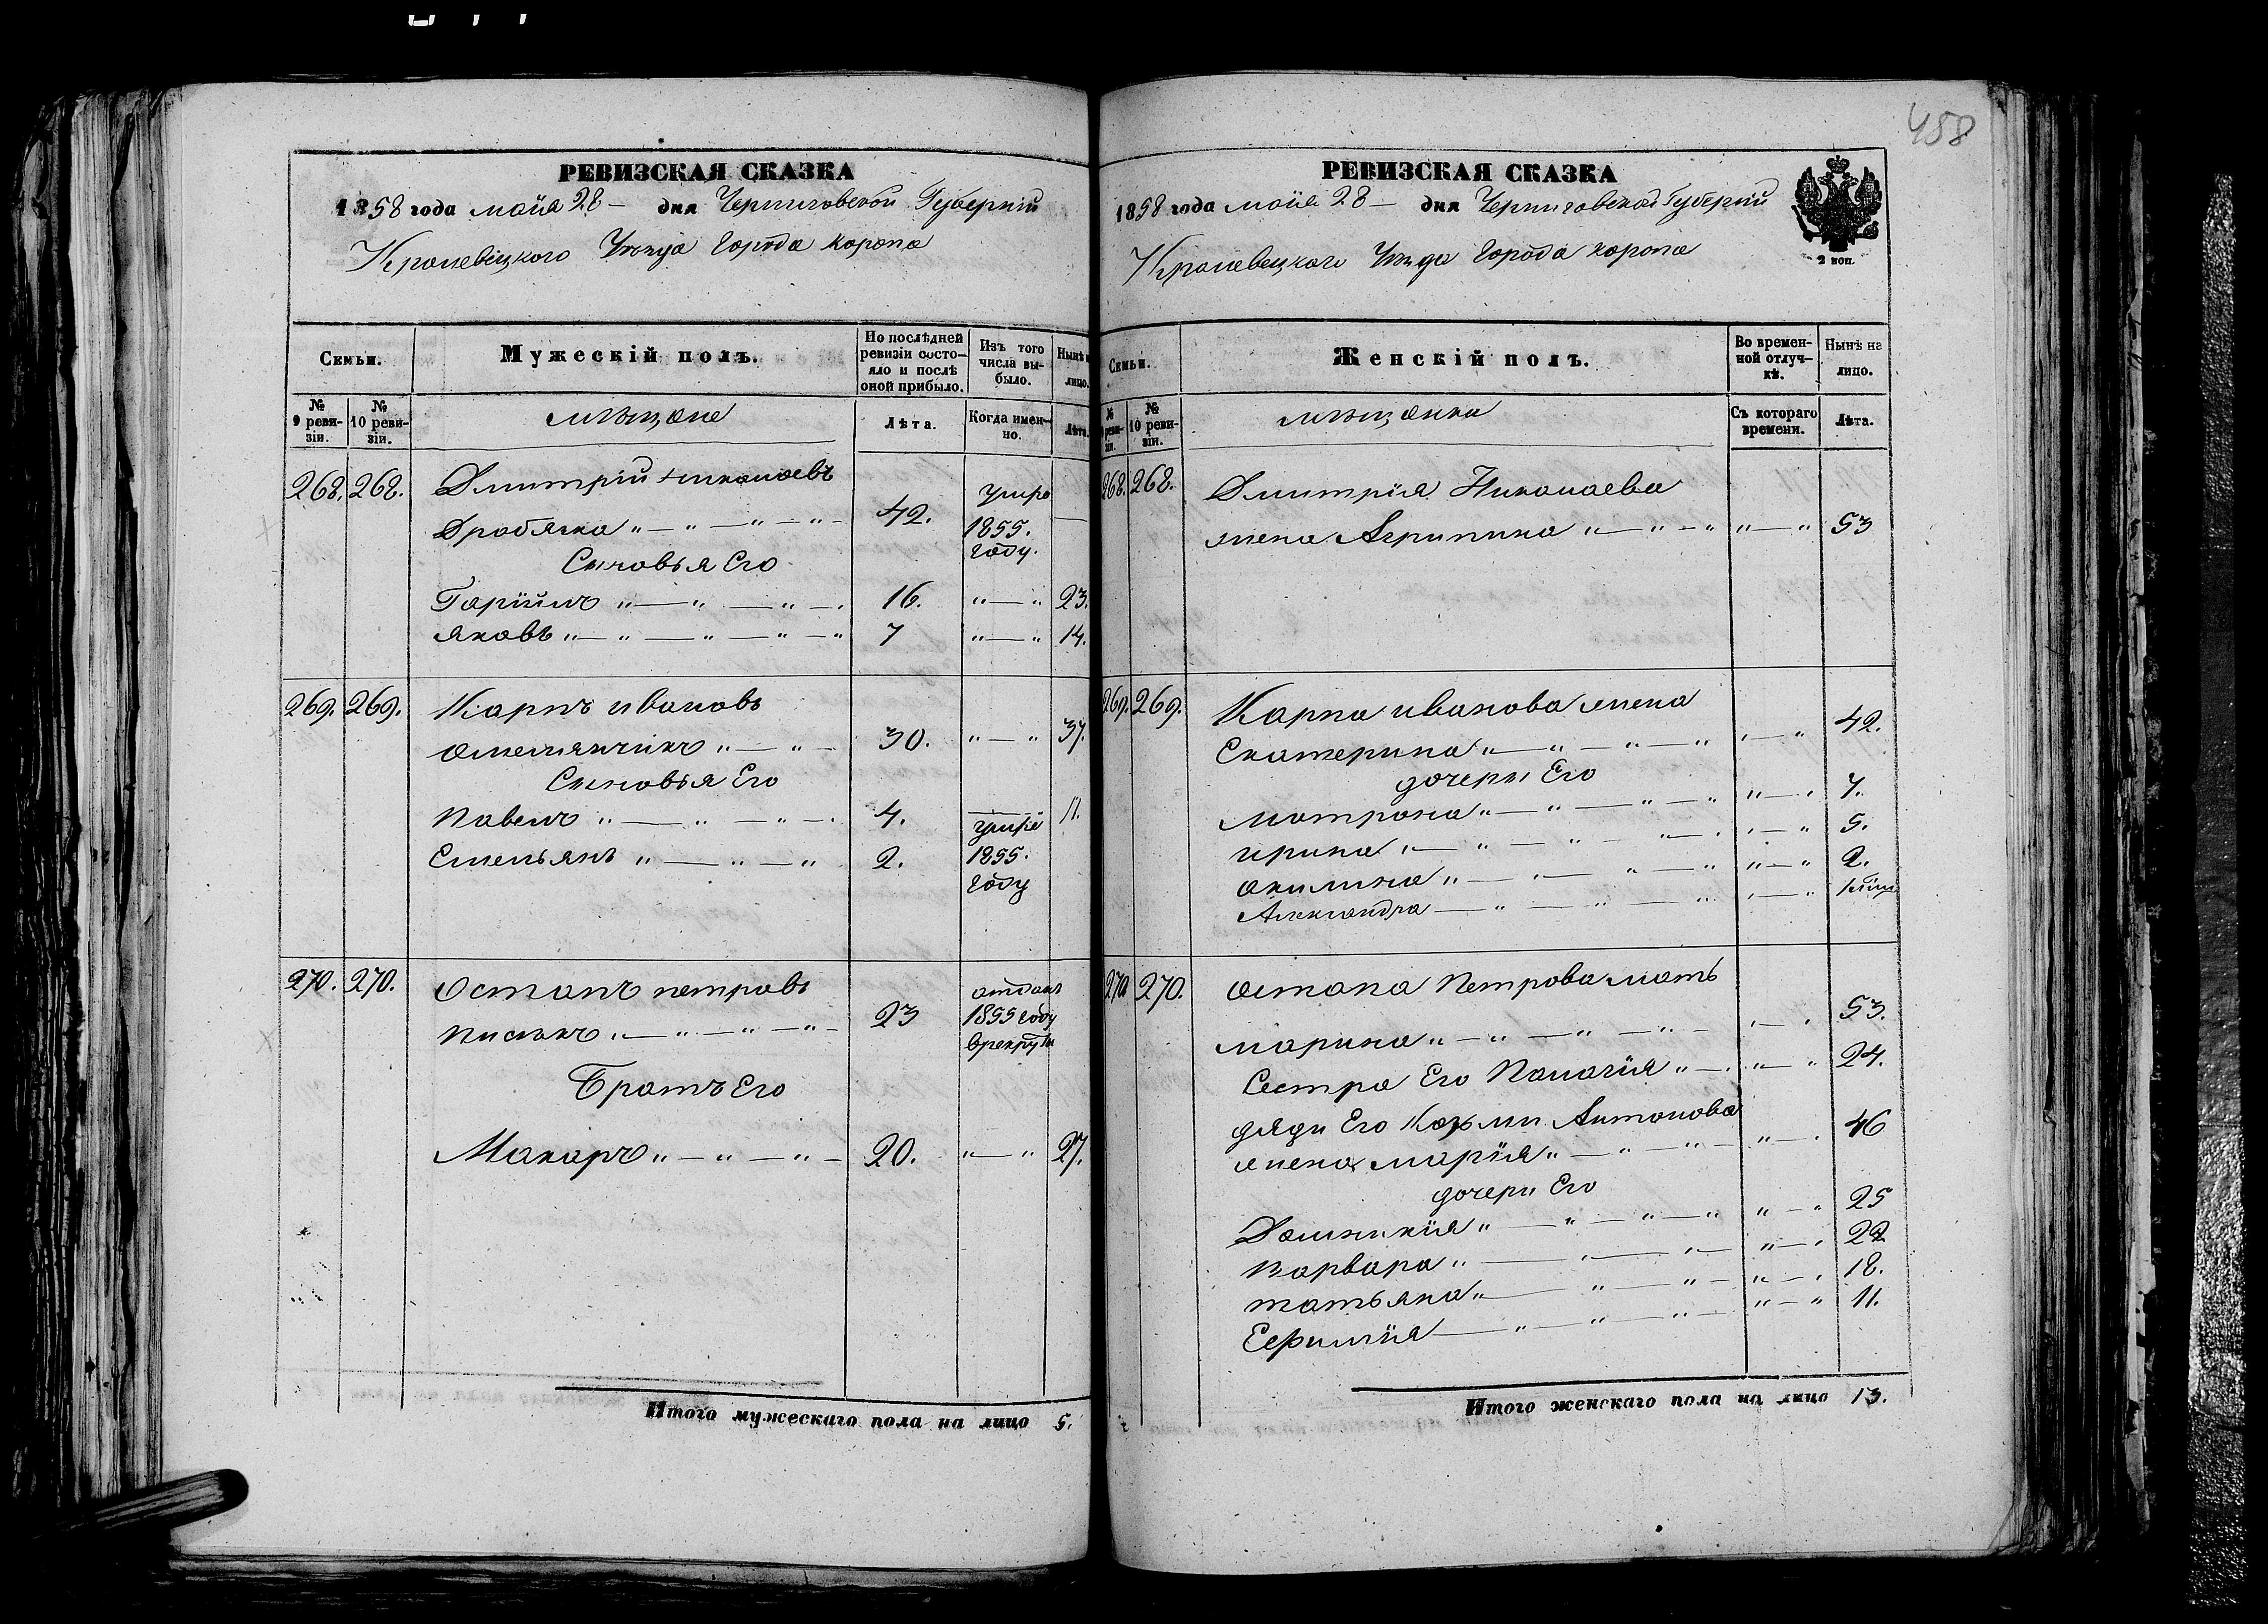 458
РЕВИЗСКАЯ СКАЗКА
1858 года мая 28 — дня Черниговской Губерніи
Кролевецкого Уезда Города Коропа
Семьи.
Мужескій полъ.
По послѣдней ревизіи состояло и послѣ оной прибыло.
Изъ того числа выбыло.
Нынѣ на лицо.
№ 9 ревизіи.
№ 10 ревизіи.
мѣщане
Лѣта.
Когда именно.
Лѣта.
268. 268. Дмитрій Николаевъ
Дробязка " — " — " — " — 42. умре 1855. году. —
Сыновья Его
" — " — " — 16. " — " 23.
Яковъ " — " — " — " — " 7 " — " 14.
269. 269. Карпъ Ивановъ
Омельянчикъ " — " — 30. " — " 37.
Сыновья Его
Павелъ " — " — " — 4. — 11.
Емельянъ " — " — " 2. умре 1855. году
270. 270. Остапъ Петровъ
" — " — " — " — 23 отданъ 1855 году врекруты
Братъ Его
Макаръ " — " — " — 20. " — " 27.
Итого мужескаго пола на лицо 5.
РЕВИЗСКАЯ СКАЗКА
1858 года мая 28 — дня Черниговской Губерніи
Кролевецкаго Уезда Города Коропа
2 коп.
Семьи.
Женскій полъ.
Во временной отлучкѣ.
Нынѣ на лицо.
№ 9 ревизіи.
№ 10 ревизіи.
мѣщанки
Съ котораго времени.
Лѣта.
268. 268. Дмитрія Николаева
жена Агрипина " — " — " " — " 53
269. 269. Карпа Иванова жена
Екатерина " — " — " — " " — " 42.
дочери Его
Матрона " — " — " — " " — " 7.
Ирина " — " — " — " — " " — " 5.
Акилина " — " — " — " " — " 2.
Александра — " — " — " " — "
270 270. Остапа Петрова мать
Марина " — " — " — " — " — " 53.
Сестра Его Палагія " — " " — " 24.
дяди Его Козьми Антонова
жена Марія " — " — " — " — " 46
дочери Его
Домникія " — " — " — " " — " 25
Варвара " — " — " — " — " 22
Татьяна " — " — " — " — " 18.
Ефимія — " — " — " — " — " 11.
Итого женскаго пола на лицо 13.